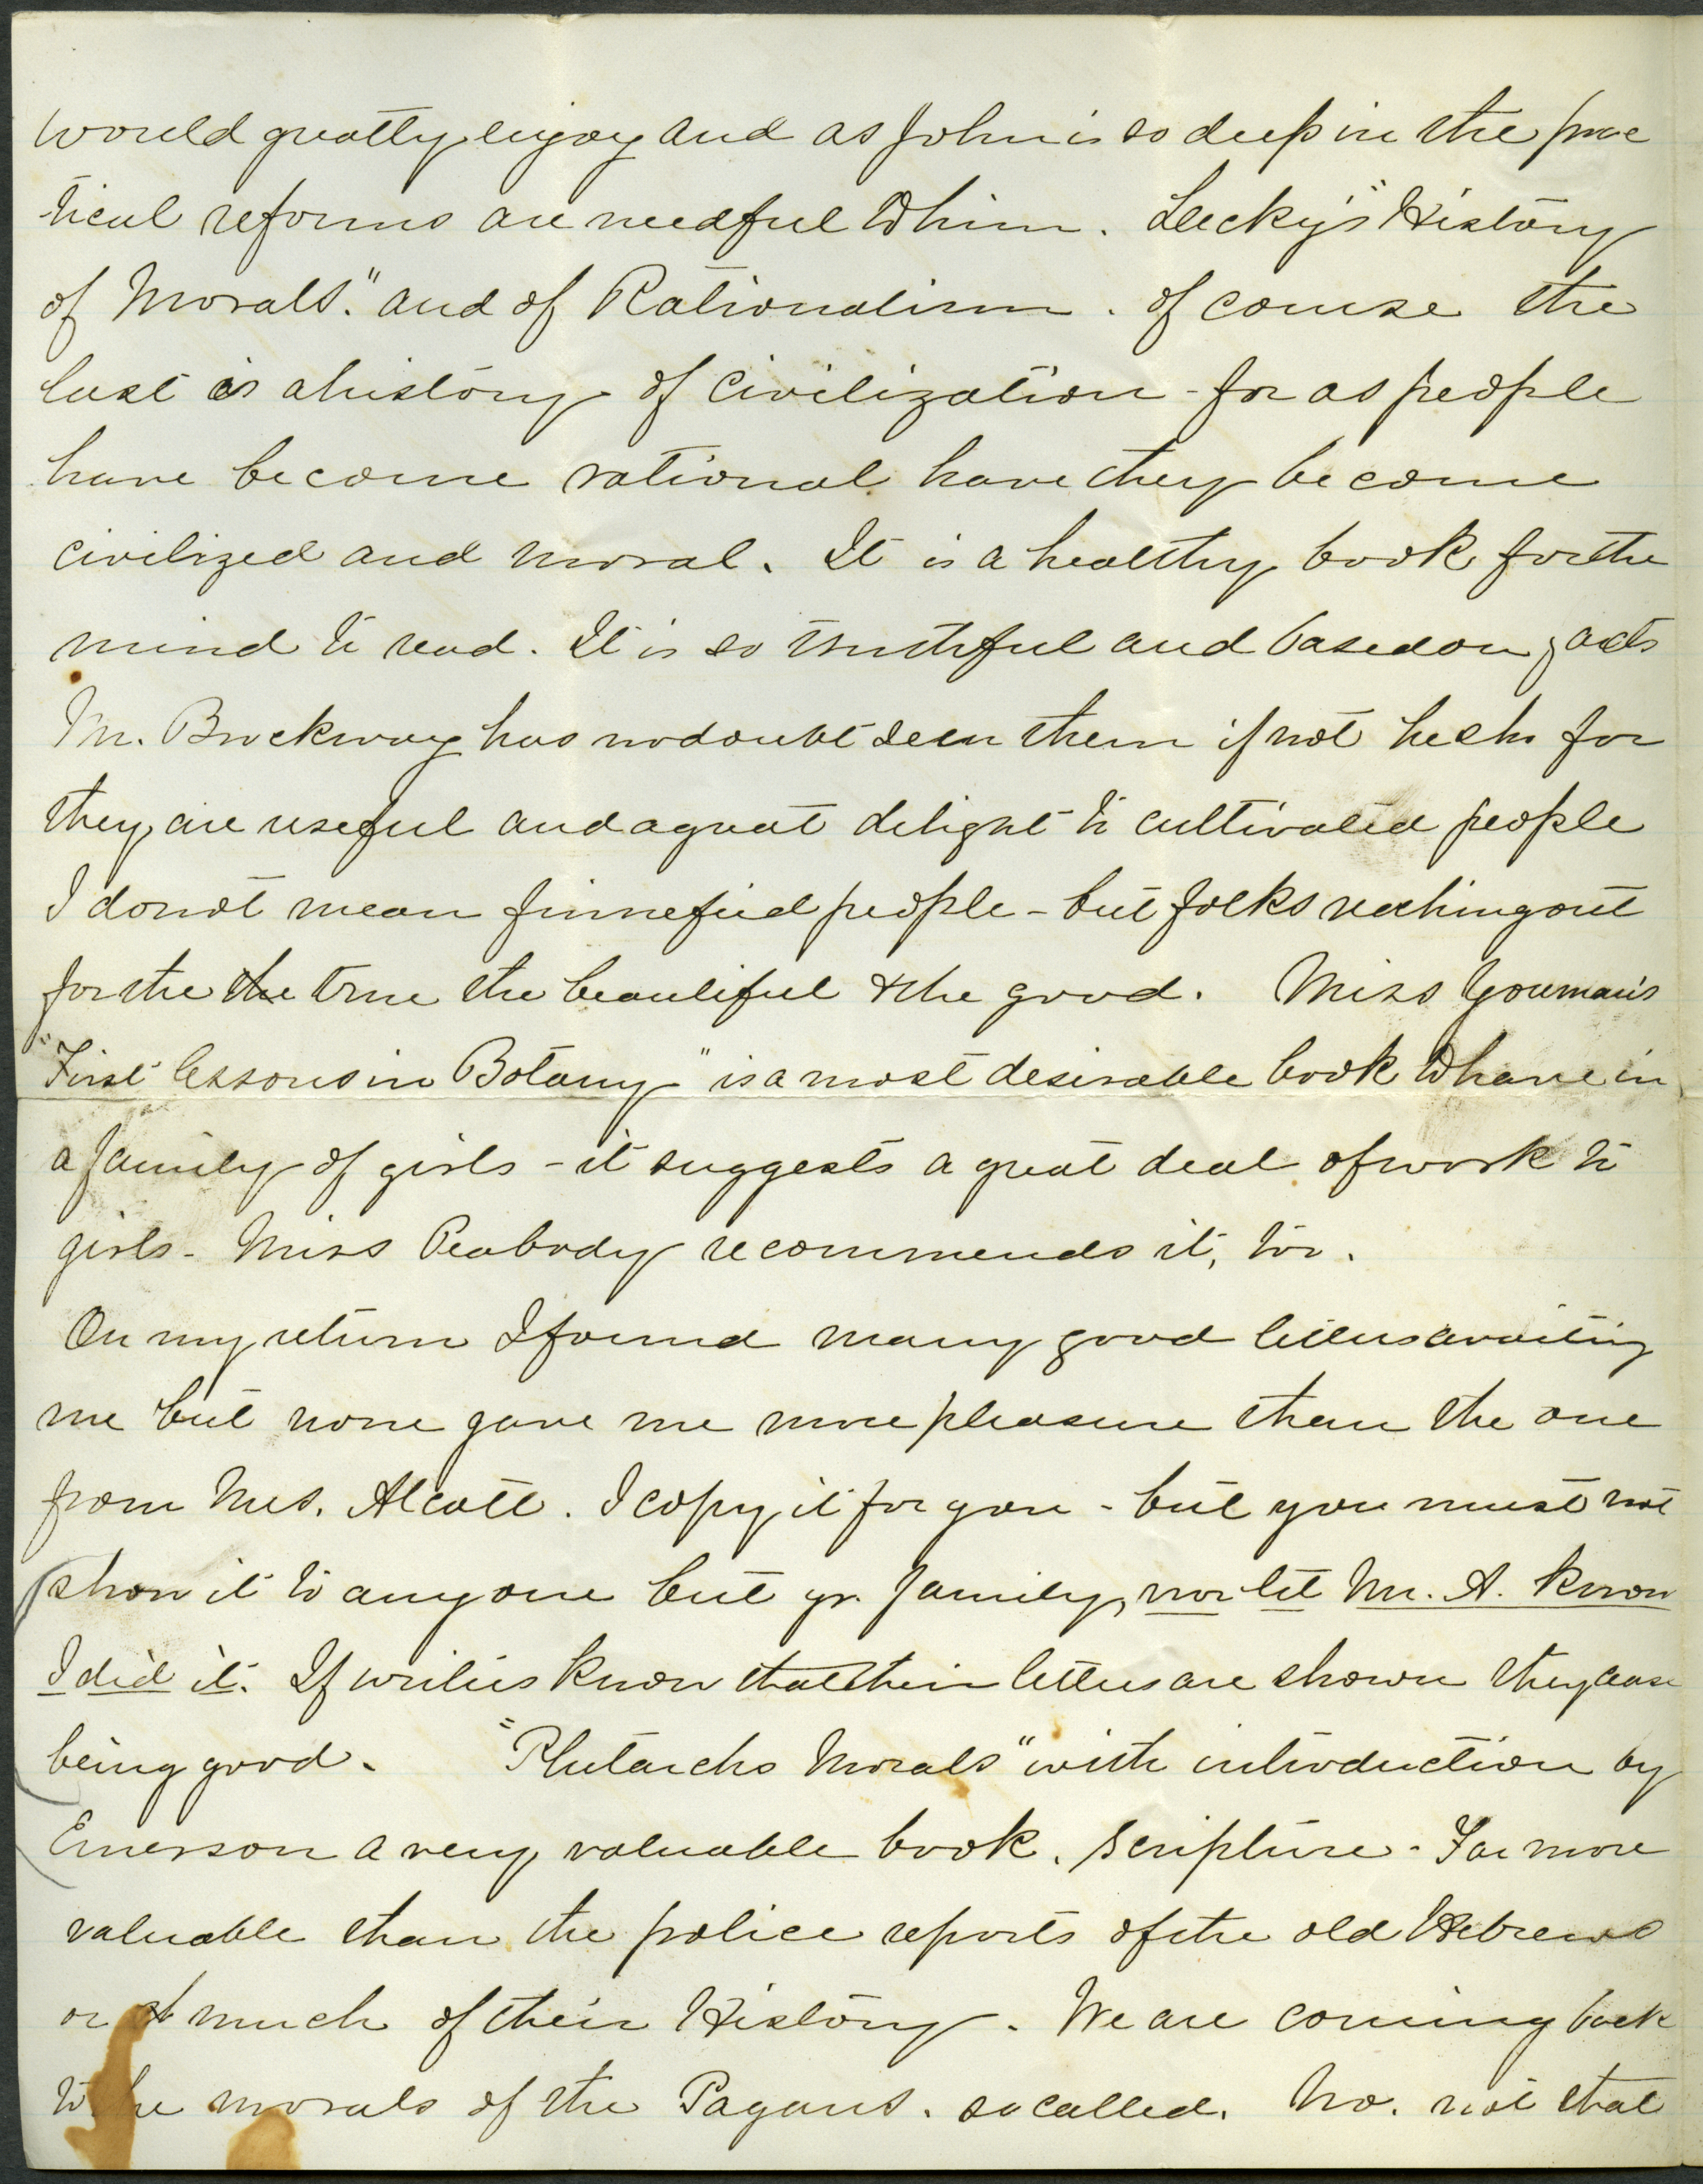 would greatly enjoy and as John is so deep in the prac
tical reforms are needful to him. Lecky's "History
of Morals." and of Rationalism. Of course the
last is a history of civilization - for as people
have become rational have they become
civilized and moral. It is a healthy book for the
mind to read. It is so truthful and based on facts
Mr. Brockway has no doubt seen them if not he shd for
they are useful and a great delight to cultivated people
I do not mean finnefied people - but folks reaching out
for the the true the beautiful & the good. Miss Youman's
"First lessons in Botany" is a most desirable book to have in
a family of girls - it suggests a great deal of work to
girls - Miss Peabody recommends it, too.
On my return I found many good letters awaiting
me but none gave me more pleasure than the one
from Mrs. Alcott. I copy it for you - but you must not
show it to any one but yr. family, nor let Mr. A. know
I did it. If writers know that their letters are shown they cease
being good. "Plutarchs Morals" with introduction by
Emerson a very valuable book. Scripture - Far more
valuable than the police reports of the old Hebrews
or much of their History. We are coming back
to the morals of the Pagans. so called. No. not that